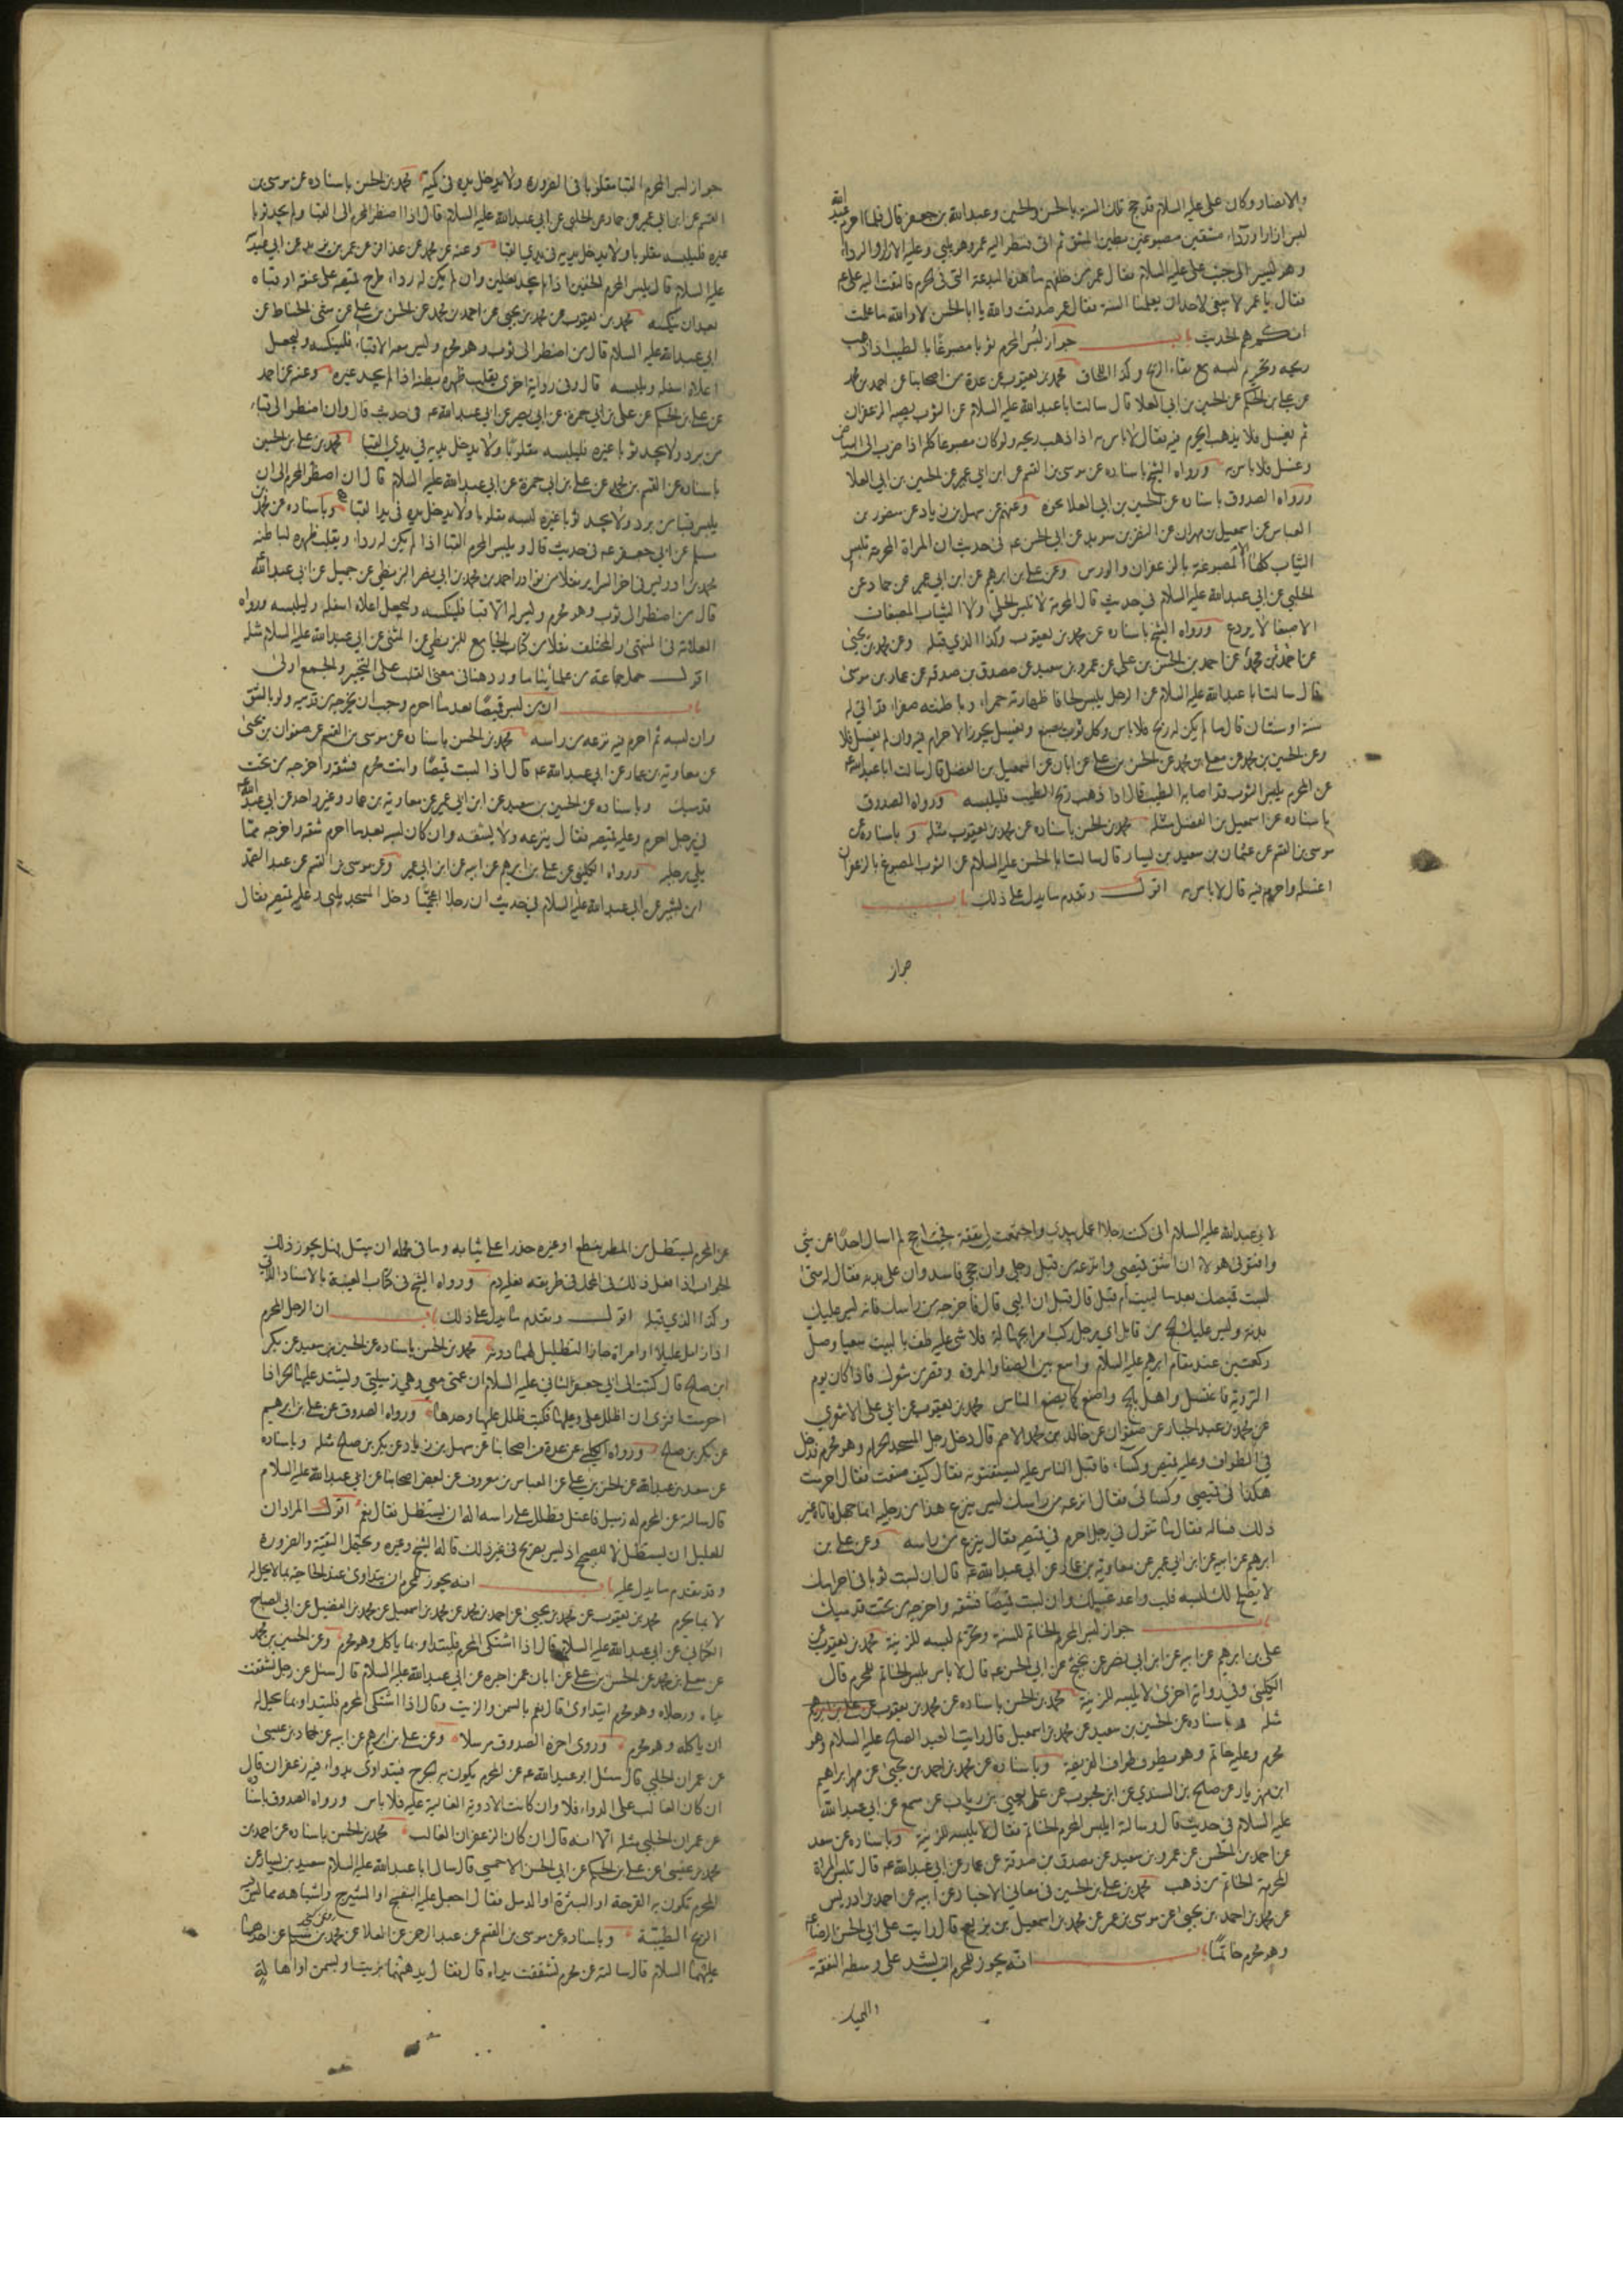 والانصار وكان على عليه السلام قد حج تلك السنة بالحسن والحسين وعبد الله بن جعفر قال فلما احرم عبد الله
لبس ازارا ورداء ممشقين مصبوغين بطين المشق ثم اتى فنظر اليه عمر وهو يلبي وعليه الازار والرداء
وهو يسير الى جنب على عليه السلام فقال عمر من خلفهم ما هذه البدعة التى فى الحرم فالتفت اليه على عم
فقال يا عمر لا ينبغى لاحد ان يعلمنا السنة فقال عمر صدقت والله يا ابا الحسن لا والله ما علمت
انكم هم الحديث باب جواز لبس المحرم ثوبا مصبوغا بالطيب اذا ذهب
ريحه وتحريم لبسه مع بقاء الريح وكذا اللحاف محمد بن يعقوب عن عدة من اصحابنا عن احمد بن محمد
عن على بن الحكم عن الحسين بن ابى العلا قال سالت ابا عبد الله عليه السلام عن الثوب يصيبه الزعفران
ثم يغسل فلا يذهب ايحرم فيه فقال لا باس به اذا ذهب ريحه ولو كان مصبوغا كله اذا ضرب الى البياض
وغسل فلا باس به ورواه الشيخ باسناده عن موسى بن القسم عن ابن ابى عمير عن الحسين بن ابى العلا
ورواه الصدوق باسناده عن الحسين بن ابى العلا نحوه وعنهم عن سهل بن زياد عن منصور بن
العباس عن اسمعيل بن مهران عن النضر بن سويد عن ابى الحسن عم فى حديث ان المراة المحرمة تلبس
الثياب كلها الا المصبوغة بالزعفران والورس وعن على بن ابرهيم عن ابيه عن ابن ابى عمير عن حماد عن
الحلبى عن ابى عبد الله عليه السلام فى حديث قال المحرمة لا تلبس الحلى ولا الثياب المصبغات
الا صبغا لا يردع ورواه الشيخ باسناده عن محمد بن يعقوب وكذا الذى قبله وعن محمد بن يحيى
عن احمد بن محمد عن احمد بن الحسن بن على عن عمرو بن سعيد عن مصدق بن صدقه عن عمار بن موسى
قال سالت ابا عبد الله عليه السلام عن الرجل يلبس لحافا ظهارته حمراء وبطانته صفراء قد اتى له
سنة او سنتان قال ما لم يكن له ريح فلا باس وكل ثوب يصبغ ويغسل يجوز الاحرام فيه وان لم يغسل فلا
وعن الحسين بن محمد عن معلى بن محمد عن الحسن بن على عن ابان عن اسمعيل بن الفضل قال سالت ابا عبد الله عم
عن المحرم يلبس الثوب قد اصابه الطيب قال اذا ذهب ريح الطيب فليلبسه ورواه الصدوق
باسناده عن اسمعيل بن الفضل مثله محمد بن الحسن باسناده عن محمد بن يعقوب مثله وباسناده عن
موسى بن القسم عن عثمان بن سعيد بن يسار قال سالت ابا الحسن عليه السلام عن الثوب المصبوغ بالزعفران
اغسله واحرم فيه قال لا باس به اقول وتقدم ما يدل على ذلك باب
جواز
جواز لبس المحرم القبا مقلوبا فى الضرورة ولا يدخل يده فى كميه محمد بن الحسن باسناده عن موسى بن
القسم عن ابن ابى عمير عن حماد عن الحلبى عن ابى عبد الله عليه السلام قال اذا اضطر المحرم الى القبا ولم يجد ثوبا
غيره فليلبسه مقلوبا ولا يدخل يديه فى يدى القبا
عليه السلام قال يلبس المحرم الخفين اذا لم يجد نعلين وان لم يكن له رداء طرح قميصه على عنقه او قباه
بعد ان ينكسه محمد بن يعقوب عن محمد بن يحيى عن احمد بن محمد عن الحسن بن على عن مثنى الحناط عن
ابى عبد الله عليه السلام قال من اضطر الى ثوب وهو محرم وليس معه الا قباء فلينكسه وليجعل
اعلاه اسفله ويلبسه قال وفى رواية اخرى يقلب ظهره بطنه اذا لم يجد غيره وعنه عن احمد
عن على بن الحكم عن على بن ابى حمزة عن ابى بصير عن ابى عبد الله عم فى حديث قال وان اضطر الى قباء
من برد ولا يجد ثوبا غيره فليلبسه مقلوبا ولا يدخل يديه فى يدى القبا محمد بن على بن الحسين
باسناده عن القسم بن محمد عن على بن ابى حمزة عن ابى عبد الله عليه السلام قال ان اضطر المحرم الى ان
يلبس قبا من برد ولا يجد ثوبا غيره لبسه مقلوبا ولا يدخل يده فى يدا لقبا وباسناده عن محمد بن
مسلم عن ابى جعفر عم فى حديث قال ويلبس المحرم القبا اذا لم يكن له رداء ويقلب ظهره لباطنه
محمد بن ادريس فى اخر السراير نقلا من نوادر احمد بن محمد بن ابى نصر البزنطى عن جميل عن ابى عبد الله
قال من اضطر الى ثوب وهو محرم وليس له الا قبا فلينكسه وليجعل اعلاه اسفله وليلبسه ورواه
العلامة فى المنتهى والمختلف نقلا من كتاب الجامع للبزنطى عن المثنى عن ابى عبد الله عليه السلام مثله
اقول حمل جماعة من علمائنا ما ورد هنا فى معنى القلب على التخيير والجمع اولى
باب ان من لبس قميصا بعد ما احرم وجب ان يخرجه من قدميه ولو بالشق
وان لبسه ثم احرم فيه نزعه من راسه محمد بن الحسن باسناده عن موسى بن القسم عن صفوان بن يحيى
عن معاوية بن عمار عن ابى عبد الله عم قال اذا لبست قميصا وانت محرم فشقه واخرجه من تحت
قدميك وباسناده عن الحسين بن سعيد عن ابن ابى عمير عن معاوية بن عمار وغير واحد عن ابى عبد الله
فى رجل احرم وعليه قميصه فقال ينزعه ولا يشقه وان كان لبسه بعد ما احرم شقه واخرجه مما
يلى رجليه ورواه الكلينى عن على بن ابرهيم عن ابيه عن ابن ابى عمير وعن موسى بن القسم عن عبد الصمد
ابن بشير عن ابى عبد الله عليه السلام فى حديث ان رجلا اعجميا دخل المسجد يلبى وعليه قميصه فقال
لابى عبد الله عليه السلام انى كنت رجلا اعمل بيدى واجتمعت لى نفقة فجئت احج لم اسال احدا عن شى
وافتونى هولاء ان اشق قميصى وانزعه من قبل رجلى وان حجى فاسد وان على بدنه فقال له متى
لبست قميصك ابعد ما لبيت ام قبل قال قبل ان البى قال فاخرجه من راسك فانه ليس عليك
بدنه وليس عليك الحج من قابل اى رجل ركب امرا بجهالة فلا شى عليه طف بالبيت سبعا وصل
ركعتين عند مقام ابرهيم عليه السلام واسع بين الصفا والمروة وقصر من شعرك فاذا كان يوم
التروية فاغتسل واهل بالحج واصنع كما يصنع الناس محمد بن يعقوب عن ابى على الاشعرى
عن محمد بن عبد الجبار عن صفوان عن خالد بن محمد الاصم قال دخل رجل المسجد الحرام وهو محرم فدخل
فى الطواف وعليه قميص وكساء فاقبل الناس عليه يشقون فقال كيف صنعت فقال احرمت
هكذا فى قميصى وكسائى فقال انزعه من راسك ليس ينزع هذا من رجليه انما جهل فاتاه غير
ذلك فساله فقال ما تقول فى رجل احرم فى قميصه فقال ينزع من راسه وعن على بن
ابرهيم عن ابيه عن ابن ابى عمير عن معاوية بن عمار عن ابى عبد الله عم قال ان لبست ثوبا فى احرامك
لا يصلح لك لبسه فلب واعد غسلك وان لبست قميصا فشقه واخرجه من تحت قدميك
باب جواز لبس المحرم الخاتم للسنة وتحريم لبسه للزينة محمد بن يعقوب عن
على بن ابرهيم عن ابيه عن ابن ابى نصر عن نجيح عن ابى الحسن عم قال لا باس بلبس الخاتم للمحرم قال
الكلينى وفى رواية اخرى لا يلبسه للزينة محمد بن الحسن باسناده عن محمد بن يعقوب عن على بن ابرهيم
مثله وباسناده عن الحسين بن سعيد عن محمد بن اسمعيل قال رايت العبد الصالح عليه السلام وهو
محرم وعليه خاتم وهو يطوف طواف الفريضة وباسناده عن محمد بن احمد بن يحيى عن ابراهيم
ابن مهزيار عن صالح بن السندى عن ابن محبوب عن على يعنى بن رياب عن مسمع عن ابى عبد الله
عليه السلام فى حديث قال وسالته ايلبس المحرم الخاتم فقال لا يلبسه للزينة وباسناده عن سعد
عن احمد بن الحسن عن عمرو بن سعيد عن مصدق بن صدقة عن عمار عن ابى عبد الله عم قال تلبس المراة
المحرمة الخاتم من ذهب محمد بن على بن الحسين فى معانى الاخبار عن ابيه عن احمد بن ادريس
عن محمد بن احمد بن يحيى عن موسى بن عمر عن محمد بن اسمعيل بن بزيع قال رايت على ابى الحسن الرضا عم
وهو محرم خاتما باب انه يجوز للمحرم ان يشد على وسطه النفقة
والهميان
عن المحرم يستظل من المطر بنطع او غيره حذرا على ثيابه وما فى محمله ان يبتل فهل يجوز ذلك
الجواب اذا فعل ذلك فى المحمل فى طريقه فعليه دم ورواه الشيخ فى كتاب الغيبة بالاسناد الاتى
وكذا الذى قبله اقول وتقدم ما يدل على ذلك باب ان الرجل المحرم
اذا زامل عليلا او امراة جاز التظليل لهما دونه محمد بن الحسن باسناده عن الحسين بن سعيد عن بكر
ابن صالح قال كتبت الى ابى جعفر الثانى عليه السلام ان عمتى معى وهى زميلتى ويشتد عليها الحر اذا
احرمت افترى ان اظلل على وعليها فكتب ظلل عليها وحدها ورواه الصدوق عن على بن ابرهيم
عن بكر بن صالح ورواه الكلينى عن عدة من اصحابنا عن سهل بن زياد عن بكر بن صالح مثله وباسناده
عن سعد بن عبد الله عن الحسن بن على عن العباس بن معروف عن بعض اصحابنا عن ابى عبد الله عليه السلام
قال سالته عن المحرم له زميل فاعتل فظلل على راسه اله ان يستظل فقال نعم اقول المراد ان
للعليل ان يستظل لا للصحيح اذ ليس بصريح فى غير ذلك قاله الشيخ وغيره ويحتمل التقية والضرورة
وقد تقدم ما يدل عليه باب انه يجوز للمحرم ان يتداوى عند الحاجة بما يحل له
لا بما يحرم محمد بن يعقوب عن محمد بن يحيى عن احمد بن محمد عن محمد بن اسمعيل عن محمد بن الفضيل عن ابى الصباح
الكنانى عن ابى عبد الله عليه السلام قال اذا اشتكى المحرم فليتداو بما ياكل وهو محرم وعن الحسين بن محمد
عن معلى بن محمد عن الحسن بن على عن ابان عمن اخبره عن ابى عبد الله عليه السلام قال سئل عن رجل تشققت
يداه ورجلاه وهو محرم ايتداوى قال نعم بالسمن والزيت وقال اذا اشتكى المحرم فليتداو بما يحل له
ان ياكله وهو محرم وروى اخره الصدوق مرسلا وعن على بن ابرهيم عن ابيه عن حماد بن عيسى
عن عمران الحلبى قال سئل ابو عبد الله عم عن المحرم يكون به الجرح فيتداوى بدواء فيه زعفران قال
ان كان الغالب على الدواء فلا وان كانت الادوية الغالبة عليه فلا باس ورواه الصدوق باسناده
عن عمران الحلبى مثله الا انه قال ان كان الزعفران الغالب محمد بن الحسن باسناده عن احمد بن
محمد بن عيسى عن على بن الحكم عن ابى الحسن الاحمسى قال سال ابا عبد الله عليه السلام سعيد بن يسار عن
المحرم تكون به القرحة او البثرة او الدمل فقال اجعل عليه البنفسج او الشيرج واشباهه مما ليس
الريح الطيبة وباسناده عن موسى بن القسم عن عبد الرحمن عن العلا عن محمد بن مسلم عن احدهما
عليهما السلام قال سالته عن محرم تشققت يداه قال فقال يدهنهما بزيت او بسمن او اهالة